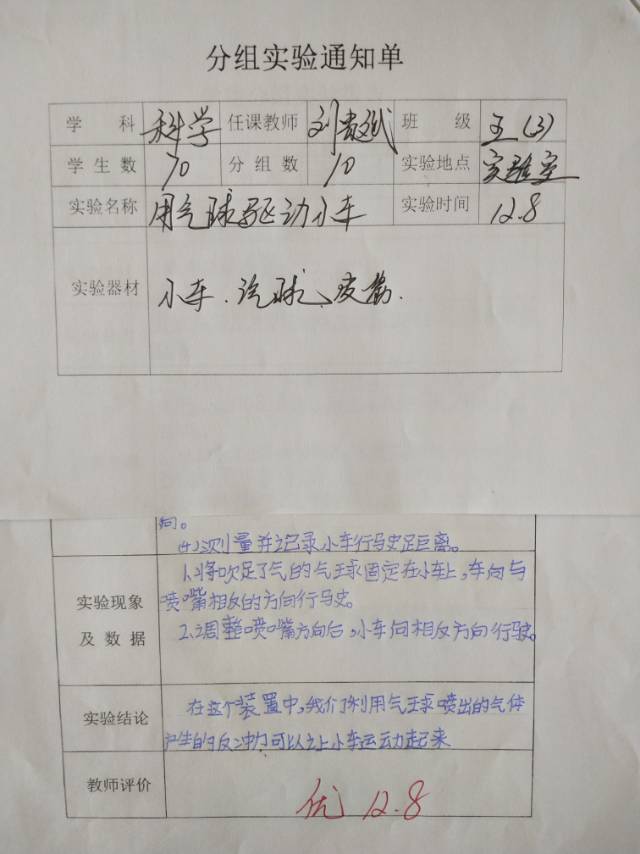 分组实验通知单
学 科 科学 任课教师 刘贵斌 班 级 五(3)
学生数 70 分组数 10 实验地点 实验室
实验名称 用气球驱动小车 实验时间 12.8
实验器材 小车、汽球、皮筋.
向。
(4)测量并记录小车行驶距离。
实验现象
及数据
1.将吹足了气的气球固定在小车上,车向与
喷嘴相反的方向行驶。
2.调整喷嘴方向后,小车向相反方向行驶。
实验结论
在这个装置中,我们利用气球喷出的气体
产生的反冲力可以让小车运动起来
教师评价 优 12.8